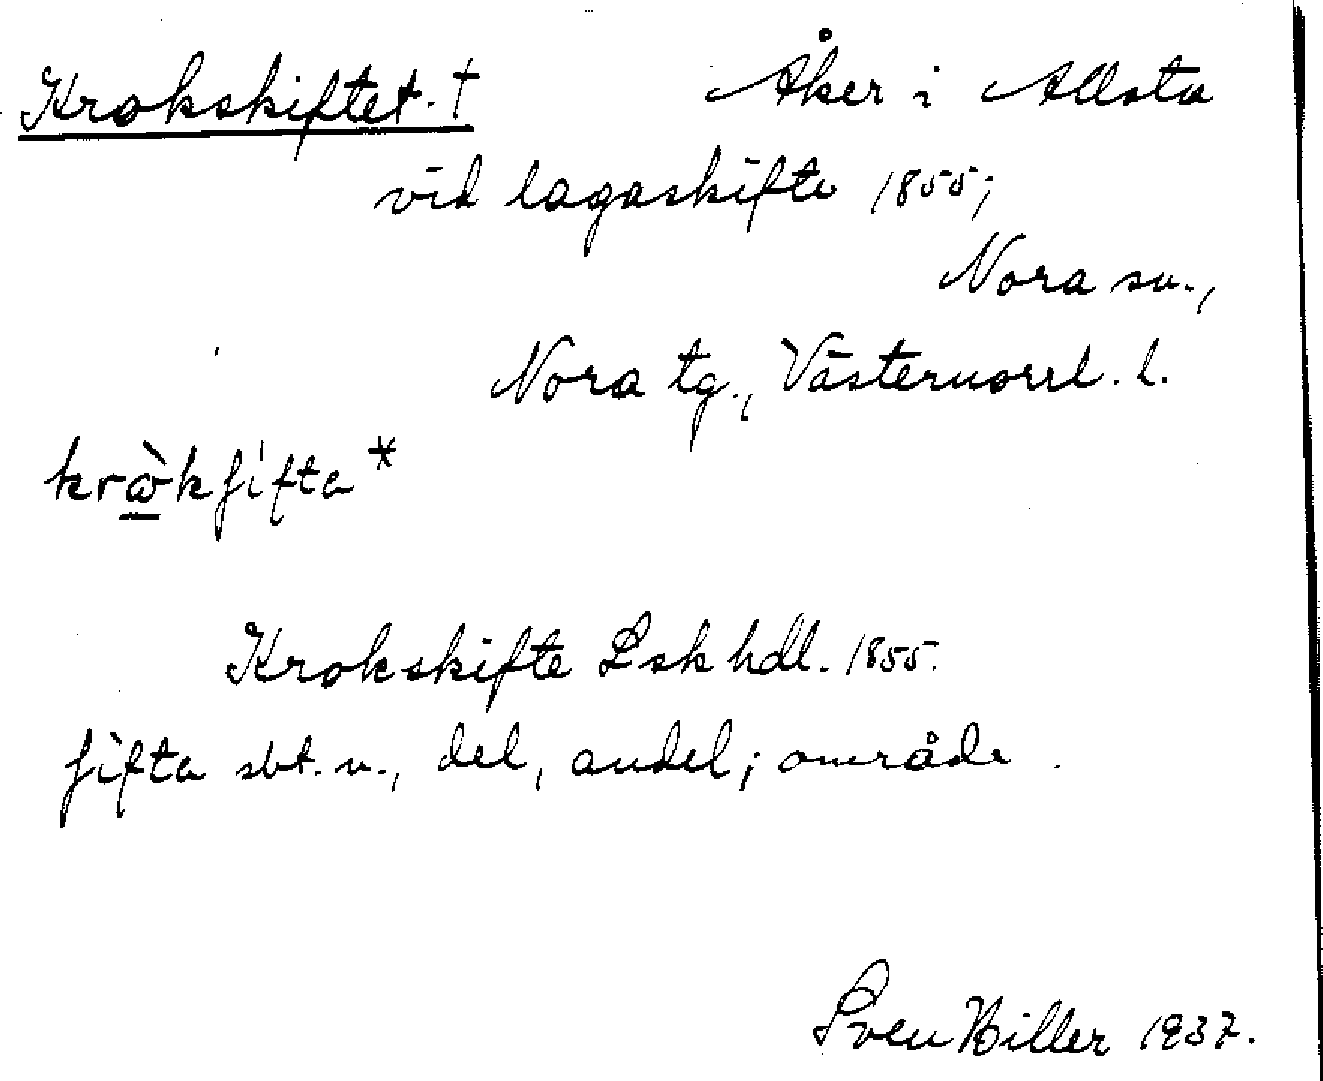 Krokskiftet. † Åker i Allsta
vid lagaskifte 1855;
Nora sn.,
Nora tg., Västernorrl. l.
krɷ̀kʃifta*
Krokskifte Lsk hdl. 1855.
ʃifta sbt. n., del, andel; område.
Sven Biller 1937.